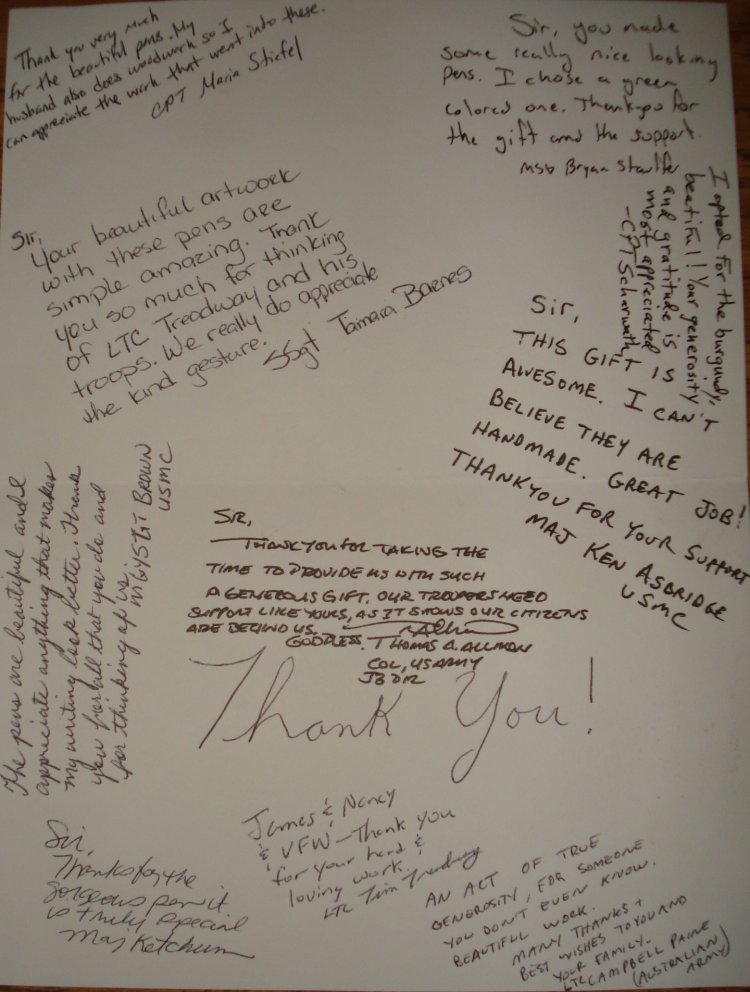 Thank you very much
for the beautiful pens. My
husband also does woodwork so I
can appreciate the work that went into these.
CPT Maria Stiefel
Sir, you made
some really nice looking
pens. I chose a green
colored one. Thankyou for
the gift and the support.
MSG Bryan Stauffer
I opted for the burgundy,
beatiful! Your generosity
and gratitude is
most appreciated.
-CPT Scharwath
Sir,
Your beautiful artwork
with these pens are
simple amazing. Thank
you so much for thinking
of LTC Treadway and his
troops. We really do appreciate
the kind gesture.
SSgt Tamara Barnes
Sir,
THIS GIFT IS
AWESOME. I CAN'T
BELIEVE THEY ARE
HANDMADE. GREAT JOB!
THANKYOU FOR YOUR SUPPORT
MAJ KEN ASBRIDGE
USMC
The pens are beautiful and I
appreciate anything that makes
my writing look better. Thank
you for all that you do and
for thinking of us.
MGYSGT BROWN
USMC
SIR,
THANK YOU FOR TAKING THE
TIME TO PROVIDE US WITH SUCH
A GENEROUS GIFT. OUR TROOPERS NEED
SUPPORT LIKE YOURS, AS IT SHOWS OUR CITIZENS
ARE BEHIND US.
GODBLESS. THOMAS A. ALLMON
COL, US ARMY
JB DIR
Thank You!
James & Nancy
& VFW - Thank you
for your hard &
loving work.
LTC Tim Treadway
Sir,
Thanks for the
gorgeous pen it
is truly special
Maj Ketchum
AN ACT OF TRUE
GENEROSITY, FOR SOMEONE
YOU DON'T EVEN KNOW.
BEAUTIFUL WORK.
MANY THANKS +
BEST WISHES TO YOU AND
YOUR FAMILY.
LTC CAMPBELL PAINE
(AUSTRALIAN
ARMY)